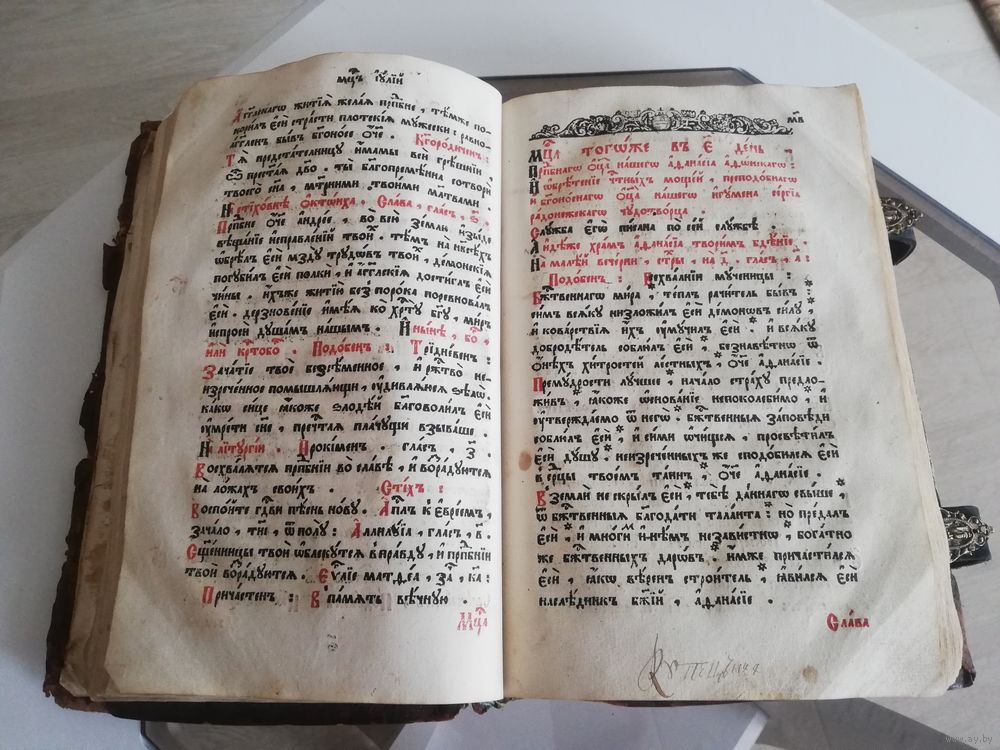 мцъ іꙋлїй
Агг҃лскагѡ житїѧ желаѧ прп҃бне , тѣмже по-
корилъ є҆сѝ страсти плотскїѧ мꙋжески : равно-
агг҃ленъ бывъ бг҃оносе ѻ҆́ч҃е . Бг҃ородиченъ :
Тѧ̀ предстателницꙋ имамы вси грѣшнїи ,
ѽ пречⷭ҇таѧ дв҃о , ты̀ благопремѣнна сотвори
твоего сн҃а , мт҃рними твоими мл҃твами .
На стїховнѣ ѻ҆ктѡиха , Слава , гласъ , ѕ҃ .
Прп҃бне ѻ҆́ч҃е андрее , во всѐ землю изыде
вѣщанїе исправленїй твои́хъ . тѣмъ на нб҃сѣхъ
ѡбрѣлъ є҆сѝ мздꙋ трꙋдѡвъ твои́хъ , демонскїѧ
погꙋбилъ є҆сѝ полки , и агг҃лскїѧ достиглъ є҆сѝ
чины , ихъже житїю без порока поревновалъ
є҆сѝ . дерзновенїе имѣѧ ко хрⷭ҇тꙋ бг҃ꙋ , миръ
испроси дꙋшамъ нашымъ . И нынѣ , бг҃о ,
или крⷭ҇тобг҃о . Подобенъ : Трїдневенъ :
Зачатїе твоѐ безсѣменное , и ржⷭ҇тво не-
изреченное помышлѧющи , ꙋдивлѧюсѧ ѕѣлѡ̀ .
какѡ сице ꙗкоже ѕлодѣй благоволилъ є҆сѝ
ꙋмрети сн҃е , пречⷭ҇таѧ плачꙋщи взываше .
На лїтꙋргїи , Прокїменъ , гласъ , з҃ .
Восхвалѧтсѧ прп҃бнїи во славѣ , и возрадꙋютсѧ
на ложахъ своихъ . Стїхъ :
Воспойте гдⷭ҇ви пѣснь новꙋ . Апⷭ҇лъ к Евреемъ ,
зачало , тл҃е , ѿ полꙋ̀ : Аллилꙋїа , гласъ , в҃ .
Сщ҃енницы твои ѡблекꙋтсѧ в правдꙋ , и прп҃бнїи
твои возрадꙋютсѧ . Еѵⷢ҇лїе матѳеа , за , к҃а :
Причастенъ : В память вѣчнꙋю .
Мцⷭ҇а
м҃в
Мцⷭ҇а тогѡже въ е҃ день ,
Прп҃бнагѡ ѻ҆ц҃а нашегѡ аѳанасїа аѳѡнскагѡ :
И ѡбрѣтенїе чⷭ҇тныхъ мощей , преподобнагѡ
и бг҃оноснагѡ ѻ҆ц҃а нашегѡ игꙋмена сергїа
радонежскагѡ чꙋдотворца .
Слꙋжба є҆гѡ̀ писана по сей слꙋжбѣ .
А идѣже храмъ аѳанасїа творимъ бдѣнїе .
На малѣй вечерни , стⷯры , на д҃ . гласъ , а҃ :
Подобенъ : Всхвалнїи мꙋченицы :
Бжⷭ҇твеннагѡ мира , теплъ рачитель бывъ :
симъ всѧкꙋ низложилъ є҆сѝ демонѡвъ силꙋ ,
и коварствїѧ ихъ ꙋмꙋчилъ є҆сѝ . и всѧкꙋ
добродѣтель соблюлъ є҆сѝ , безнавѣтнꙋ ѿ
ѻ҆нѣхъ хитростей лестныхъ , ѻ҆́ч҃е аѳанасїе .
Премꙋдрости лꙋчшее , начало страхꙋ предло-
живъ , ꙗкоже ѡснованїе непоколебимо , и
ꙋтверждаемо ѿ негѡ̀ . бжⷭ҇твенныѧ заповѣди
соблюлъ є҆сѝ , и сими ѡчищсѧ , просвѣтилъ
є҆сѝ дꙋшꙋ . неизреченныхъ же сподобилсѧ є҆сѝ
в срцы твоемъ таинъ , ѻ҆́ч҃е аѳанасїе .
В земли не скрылъ є҆сѝ , тебѣ даннагѡ свыше ,
ѿ бжⷭ҇твенныѧ благодати таланта : но предалъ
є҆сѝ , и многимъ независтнѡ , богатно
же бжⷭ҇твенныхъ дарѡвъ . имже причастилсѧ
є҆сѝ , ꙗкѡ вѣренъ строитель , ꙗвилсѧ є҆сѝ
наслѣдникъ бж҃їй , аѳанасїе .
Слава
www.ay.by